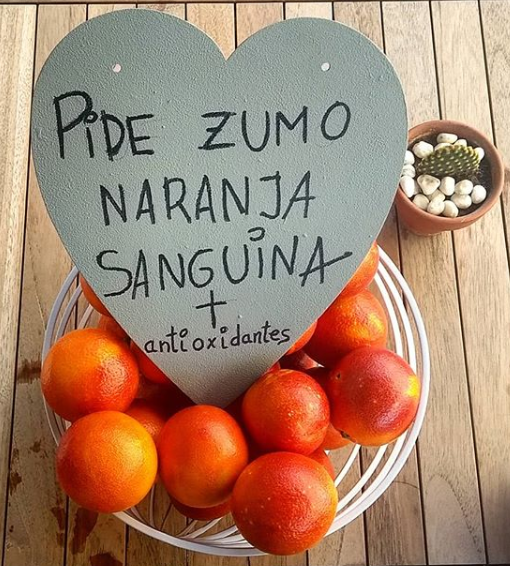 PiDE ZUMO
NARANJA
SANGUiNA
+
antioxidantes